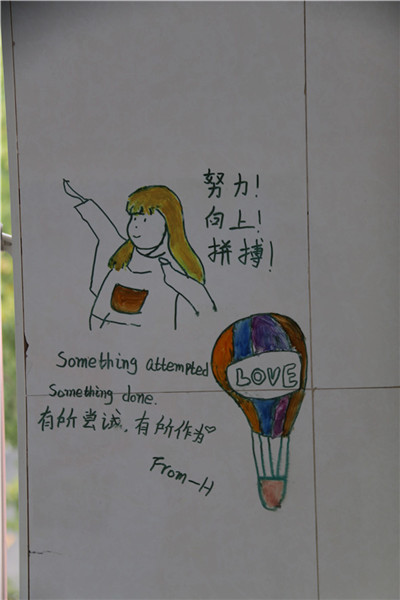 努力!
向上!
拼搏!
LOVE
Something attempted
Something done.
有所尝试,有所作为♡
From-H